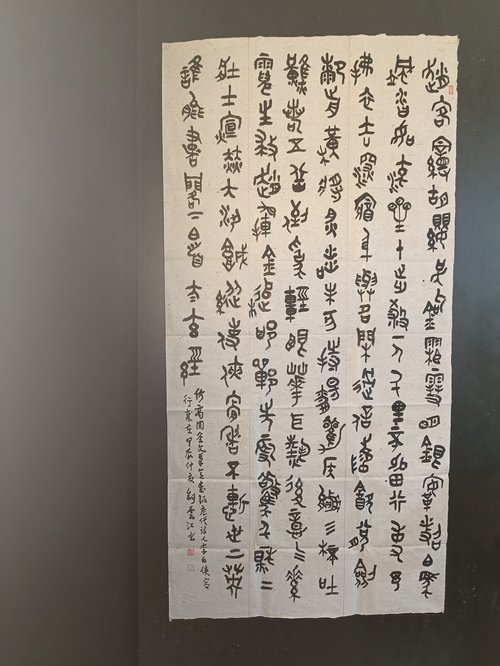 趙客縵胡纓吳鉤霜雪明銀鞍照白馬
颯沓如流星十步殺一人千里不留行事了
拂衣去深藏身與名閑過信陵飲脫劍
膝前橫將炙啖朱亥持觴勸侯嬴三杯吐
然諾五岳倒為輕眼花耳熱後意氣素
霓生救趙揮金槌邯鄲先震驚千秋二
壯士烜赫大梁城縱死俠骨香不慚世上英
誰能書閣下白首太玄經
仿商周金文筆意書錄唐代詩人李白俠客
行歲在甲辰仲夏